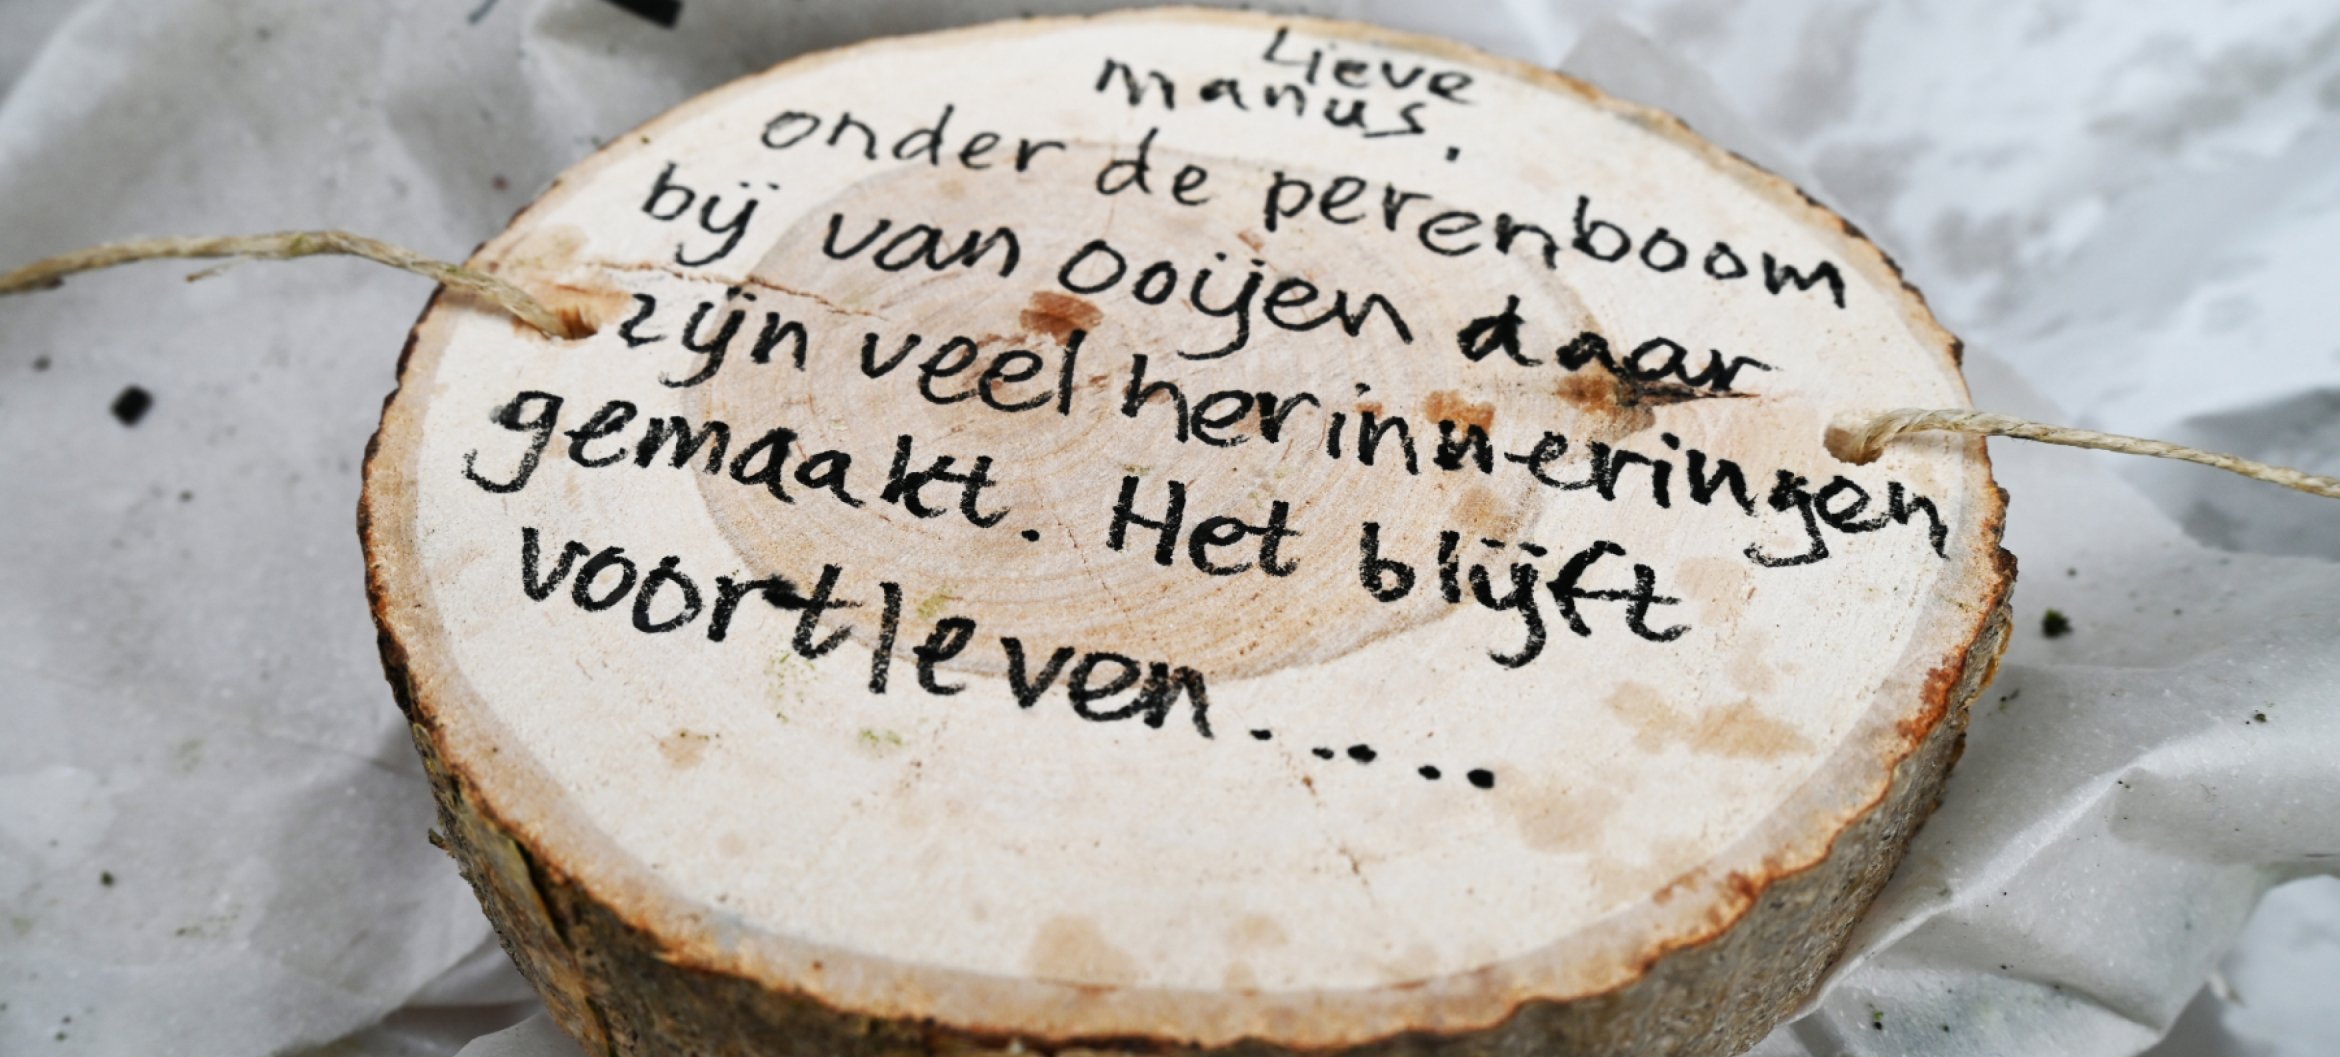 Lieve
Manus,
onder de perenboom
bij van Ooijen daar
zijn veel herinneringen
gemaakt. Het blijft
voortleven.....